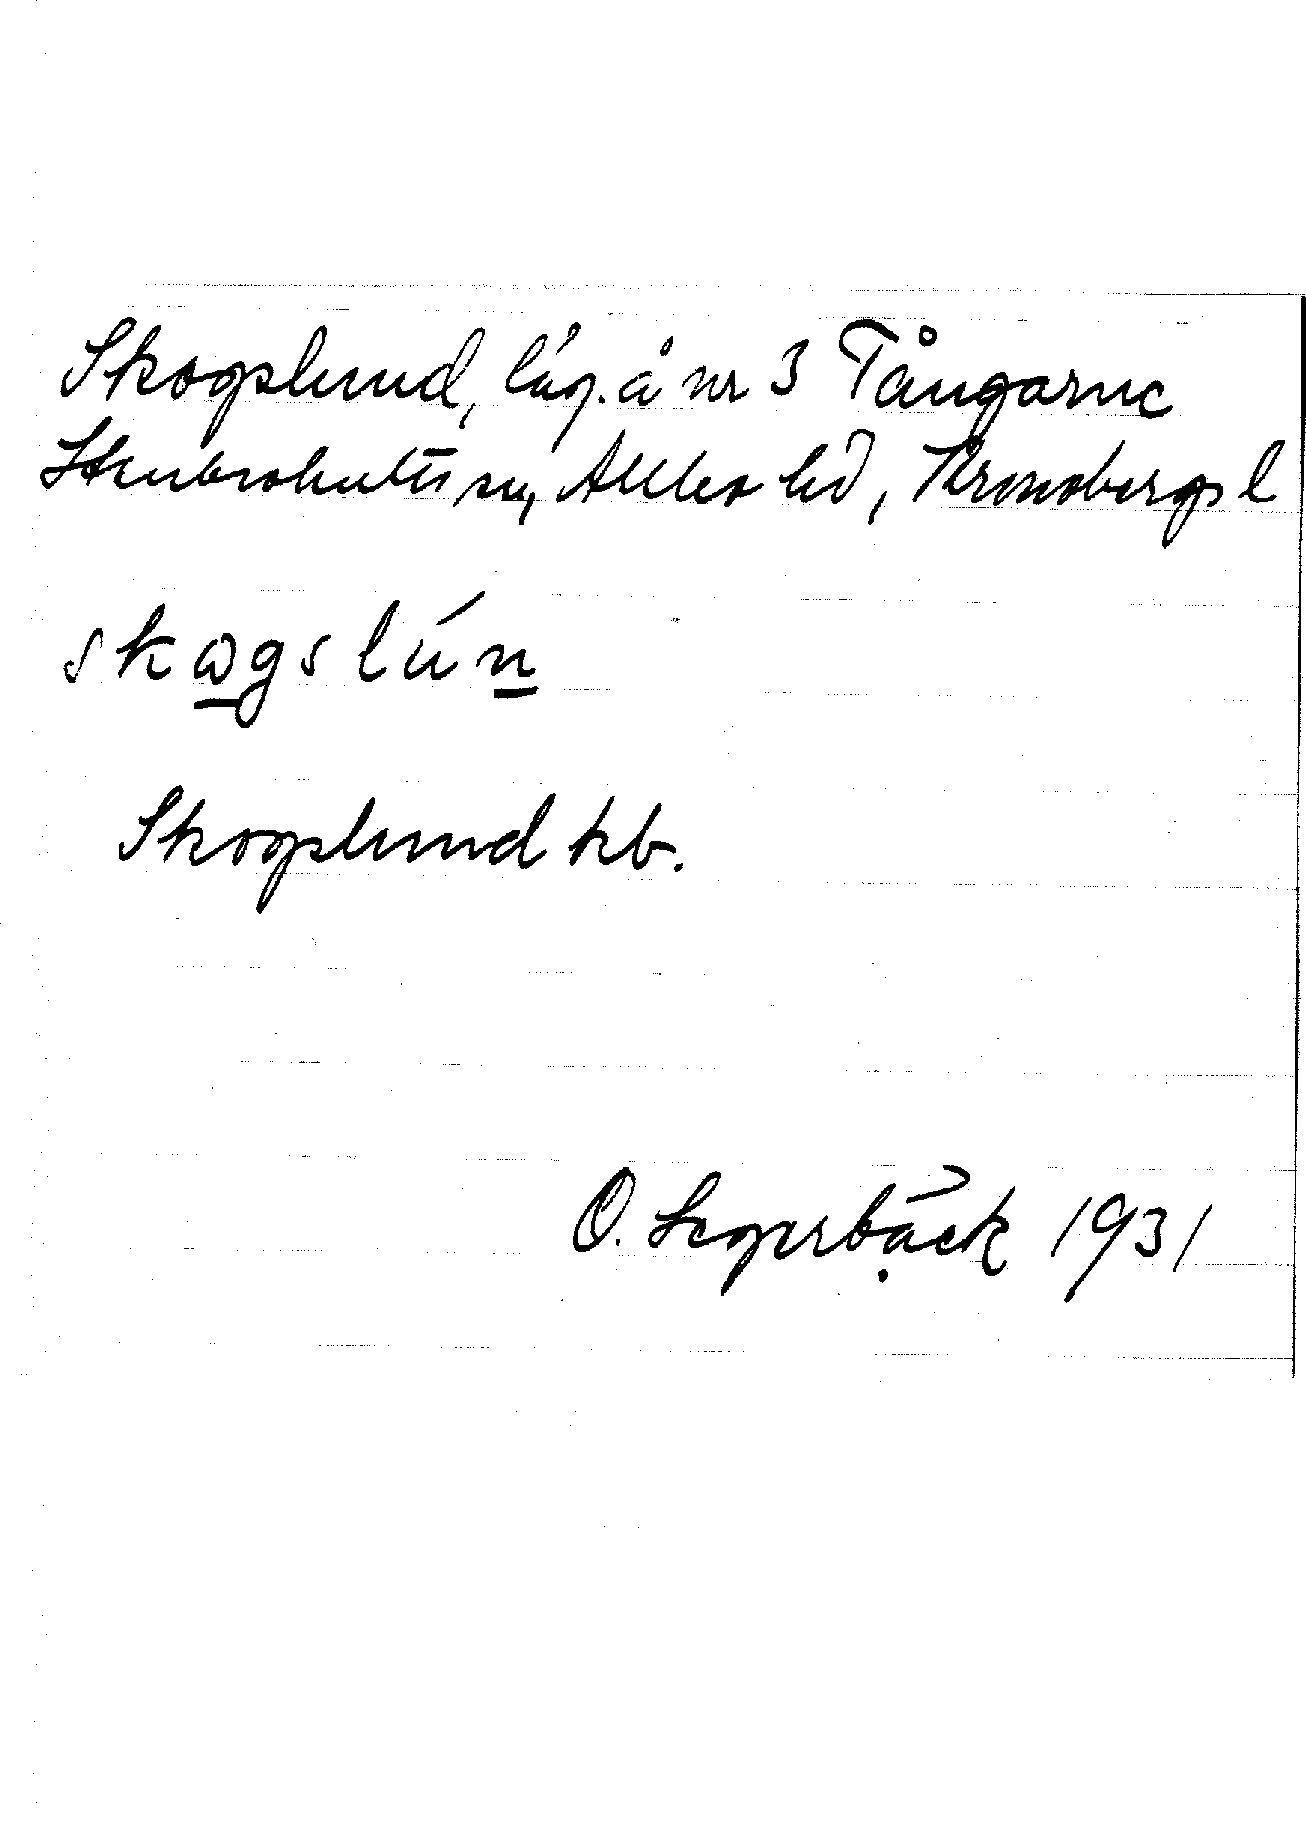 Skogslund, läg. å nr 3 Tångarne
Stenbrohults sn, Allbo hd, Kronobergs l
skogslún
Skogslund kb.
O. Segerbäck 1931